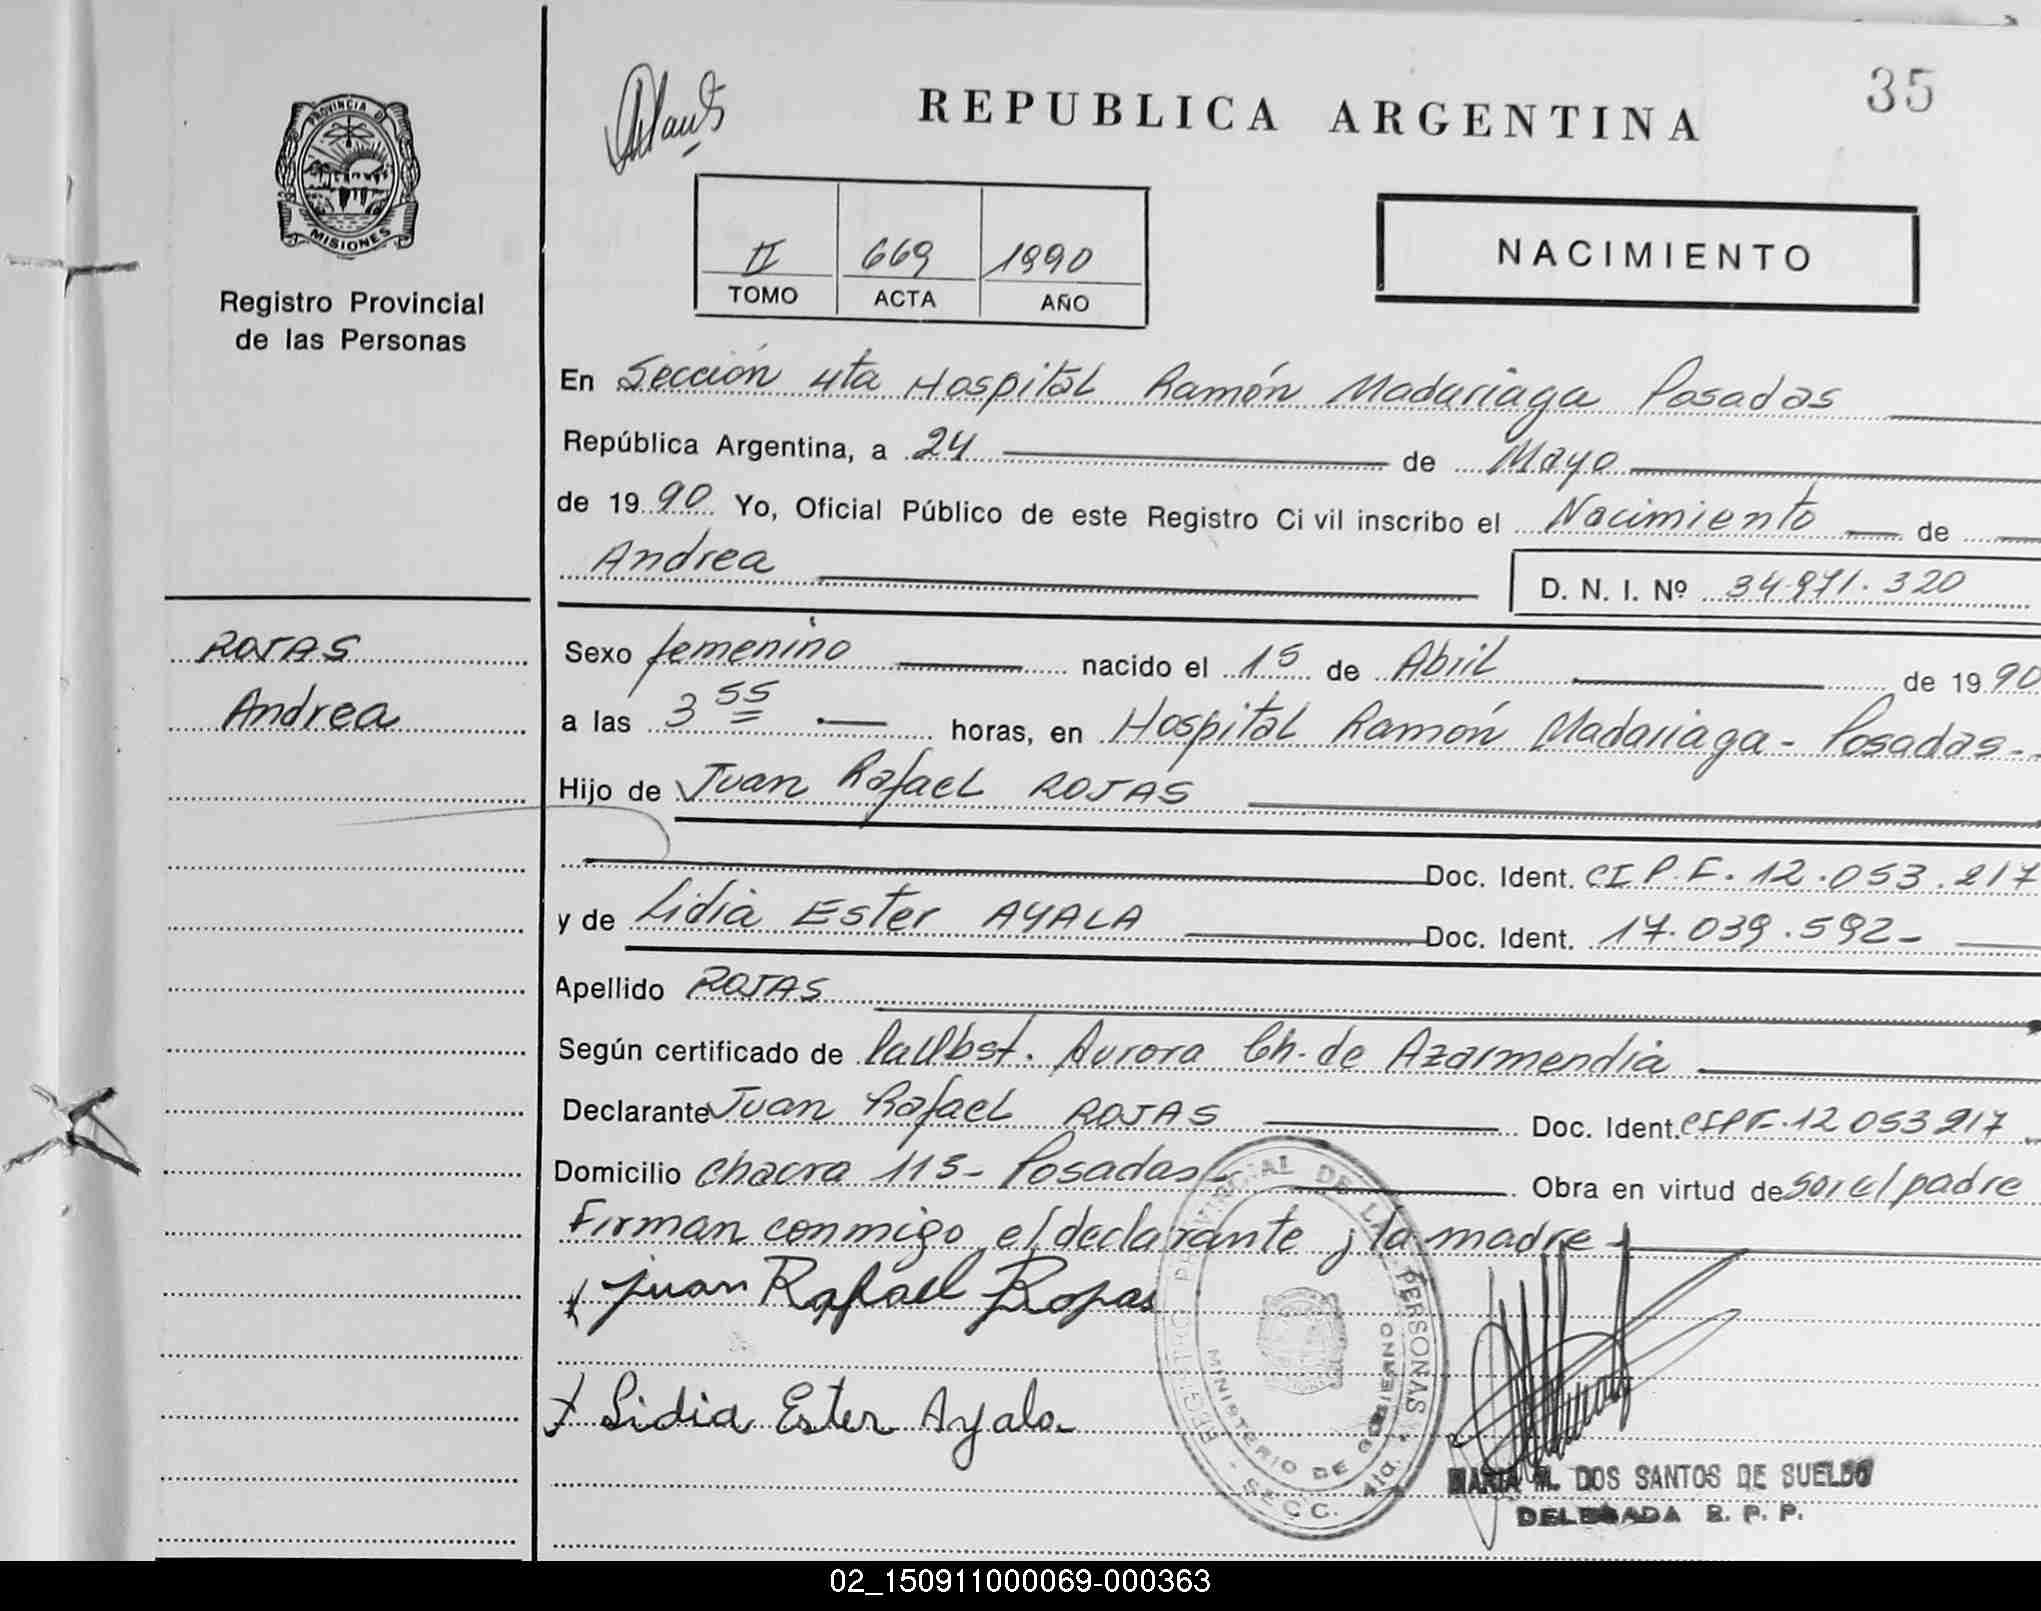 35
REPUBLICA ARGENTINA
PROVINCIA DE
MISIONES
Registro Provincial
de las Personas
II 669 1990
TOMO ACTA AÑO
NACIMIENTO
En Sección 4ta Hospital Ramón Madariaga Posadas
República Argentina, a 24 de Mayo
de 1990 Yo, Oficial Público de este Registro Civil inscribo el Nacimiento de
Andrea
D. N. I. Nº 34.971.320
ROJAS
Andrea
Sexo femenino nacido el 15 de Abril de 1990
a las 3 55 horas, en Hospital Ramón Madariaga - Posadas -
Hijo de Juan Rafael ROJAS
Doc. Ident. CI P.F. 12.053.217
y de Lidia Ester AYALA Doc. Ident. 17.039.592-
Apellido ROJAS
Según certificado de Aurora Ch. de Azarmendia
Declarante Juan Rafael ROJAS Doc. Ident. CIPF. 12 053 217
Domicilio chacra 113 - Posadas - Obra en virtud de ser el padre
Firman conmigo el declarante y la madre -
x Juan Rafael Rojas
x Lidia Ester Ayala
REGISTRO PROVINCIAL DE LAS PERSONAS
MINISTERIO DE GOBIERNO
- SECC. 4ta. -
MARIA M. DOS SANTOS DE SUELDO
DELEGADA R. P. P.
02_150911000069-000363